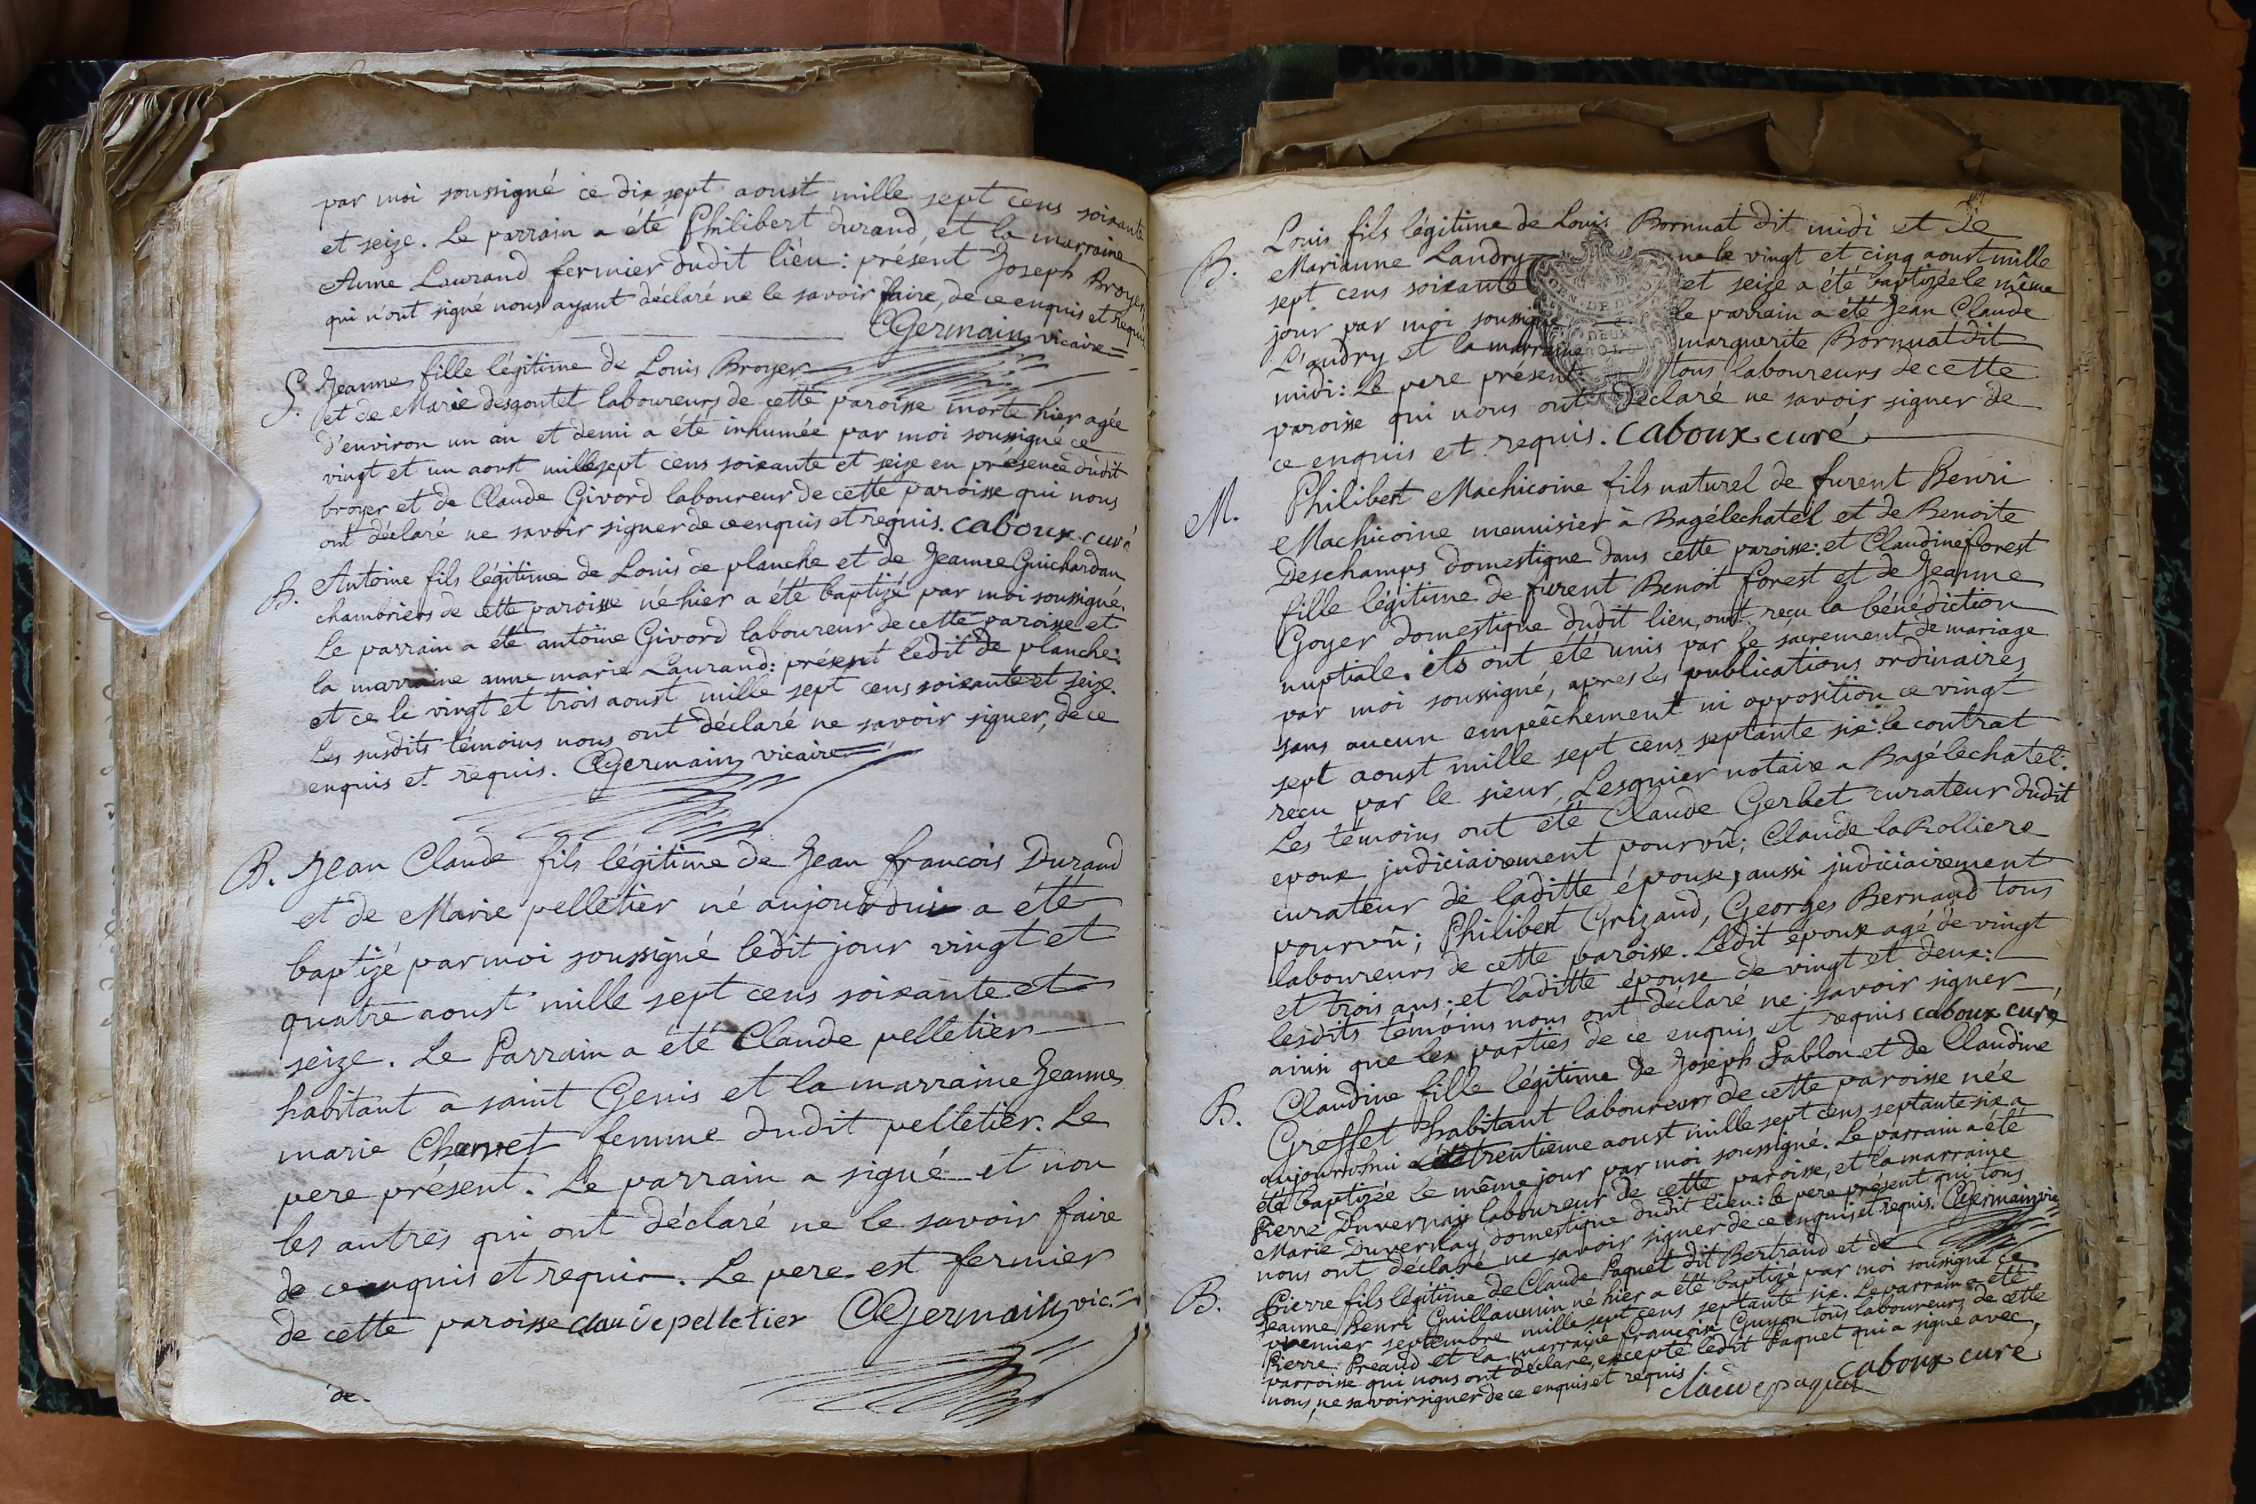 par moi soussigné ce dix sept aoust mille sept cens soixante
et seize. Le parrain a été Philibert Durand, et la marraine
Anne Laurand fermier dudit lieu: présent Joseph Broyer,
qui n'ont signé nous ayant déclaré ne le savoir faire, de ce enquis et requis
CGermain vicaire
S. Jeanne fille légitime de Louis Broyer
et de Marie desgoutet laboureurs de cette paroisse morte hier agée
d'environ un an et demi a été inhumée par moi soussigné ce
vingt et un aoust mille sept cens soixante et seize en présence dudit
broyer et de Claude Givord laboureur de cette paroisse qui nous
ont déclaré ne savoir signer de ce enquis et requis. caboux curé
B. Antoine fils légitime de Louis de planche et de Jeanne Guichardan
chambriers de cette paroisse né hier a été baptizé par moi soussigné.
Le parrain a été antoine Givord laboureur de cette paroisse et
la marraine anne marie Laurand: présent ledit de planche:
et ce le vingt et trois aoust mille sept cens soixante et seize.
Les susdits témoins nous ont déclaré ne savoir signer, de ce
enquis et requis. CGermain vicaire
B. Jean Claude fils légitime de Jean francois Durand
et de Marie pelletier né aujourdui a été
baptizé par moi soussigné ledit jour vingt et
quatre aoust mille sept cens soixante et
seize. Le Parrain a été Claude pelletier
habitant a saint Genis et la marraine Jeanne
marie Charvet femme dudit pelletier. Le
pere présent. Le parrain a signé et non
les autres qui ont déclaré ne le savoir faire
de ce enquis et requis. Le pere est fermier
de cette paroisse claude pelletier CGermain vic.
de.
B. Louis fils légitime de Louis Bornuat dit midi et de
Marianne Landry ne le vingt et cinq aoust mille
sept cens soixante et seize a été baptizée le même
jour par moi soussigné le parrain a été Jean Claude
Landry et la marraine marguerite Bornuat dit
midi: Le pere présent tous laboureurs de cette
paroisse qui nous ont déclaré ne savoir signer de
ce enquis et requis. caboux curé
M. Philibert Machicoine fils naturel de furent Henri
Machicoine menuisier à Bagélechatel et de Benoite
Deschamps domestique dans cette paroisse: et Claudine forest
fille légitime de furent Benoit forest et de Jeanne
Goyer domestique dudit lieu, ont reçu la bénédiction
nuptiale. ils ont été unis par le sacrement de mariage
par moi soussigné, apres les publications ordinaires
sans aucun empêchement ni opposition ce vingt
sept aoust mille sept cens septante six: le contrat
reçu par le sieur Lesquier notaire a Bagélechatel.
Les témoins ont été Claude Gerbet curateur dudit
epoux judiciairement pourvû; Claude la Rolliere
curateur de laditte épouse, aussi judiciairement
pourvû; Philibert Grizand, Georges Bernaud tous
laboureurs de cette paroisse. Ledit époux agé de vingt
et trois ans: et laditte épouse de vingt et deux:
lesdits témoins nous ont déclaré ne savoir signer
ainsi que les parties de ce enquis et requis caboux curé
B. Claudine fille légitime de Joseph Sablon et de Claudine
Greffet habitant laboureurs de cette paroisse née
aujourdhui trentieme aoust mille sept cens septante six a
été baptizée le même jour par moi soussigné. Le parrain a été
Pierre Duvernay laboureur de cette paroisse, et la marraine
Marie Duvernay domestique dudit lieu: le pere présent qui tous
nous ont déclaré ne savoir signer de ce enquis et requis. CGermain vic
B. Pierre fils légitime de Claude Paquet dit Bertrand et de
Jeanne Henri Guillaumin né hier a été baptizé par moi soussigné ce
premier septembre mille sept cens septante six. Le parrain a été
Pierre Preaud et la marraine francoise Guyon tous laboureurs de cette
parroisse qui nous ont déclaré, excepté ledit Paquet qui a signé avec,
nous, ne savoir signer de ce enquis et requis caboux curé
claude paquet